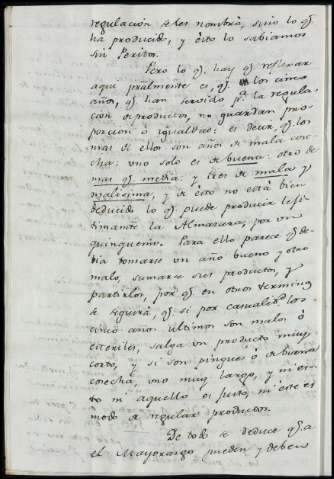 regulación de tres nombrò, sino lo q.e
ha producido, y esto lo sabiamos
sin Peritos.
Pero lo q.e hay q.e reflexar
aqui pralmente es, q.e los cinco
años, q.e han servido p.a la regula-
cion de productos, no guardan pro-
porcion ò igualdad: es decir, q.e los
mas de ellos son años de mala cose-
cha: uno solo es de buena: otro de
mas q.e media: y tres de mala y
malisima; y de esto no està bien
deducido lo q.e puede producir legi-
timamte la Almazara, por un
quinquenio. Para ello parece q.e de-
bia tomarse un año bueno y otro
malo, sumarse sus productos, y
partirlos, por q.e en otros terminos
se seguirà, q.e si por casualidad los
cinco años ultimos son malos ò
esteriles, salga un producto muy
corto, y si son pingues ò de buena
cosecha, uno muy largo, y ni es-
to ni aquello es justo, ni este es
modo de regular productos.
De todo se deduce q.e a
el Mayorazgo pueden y deben